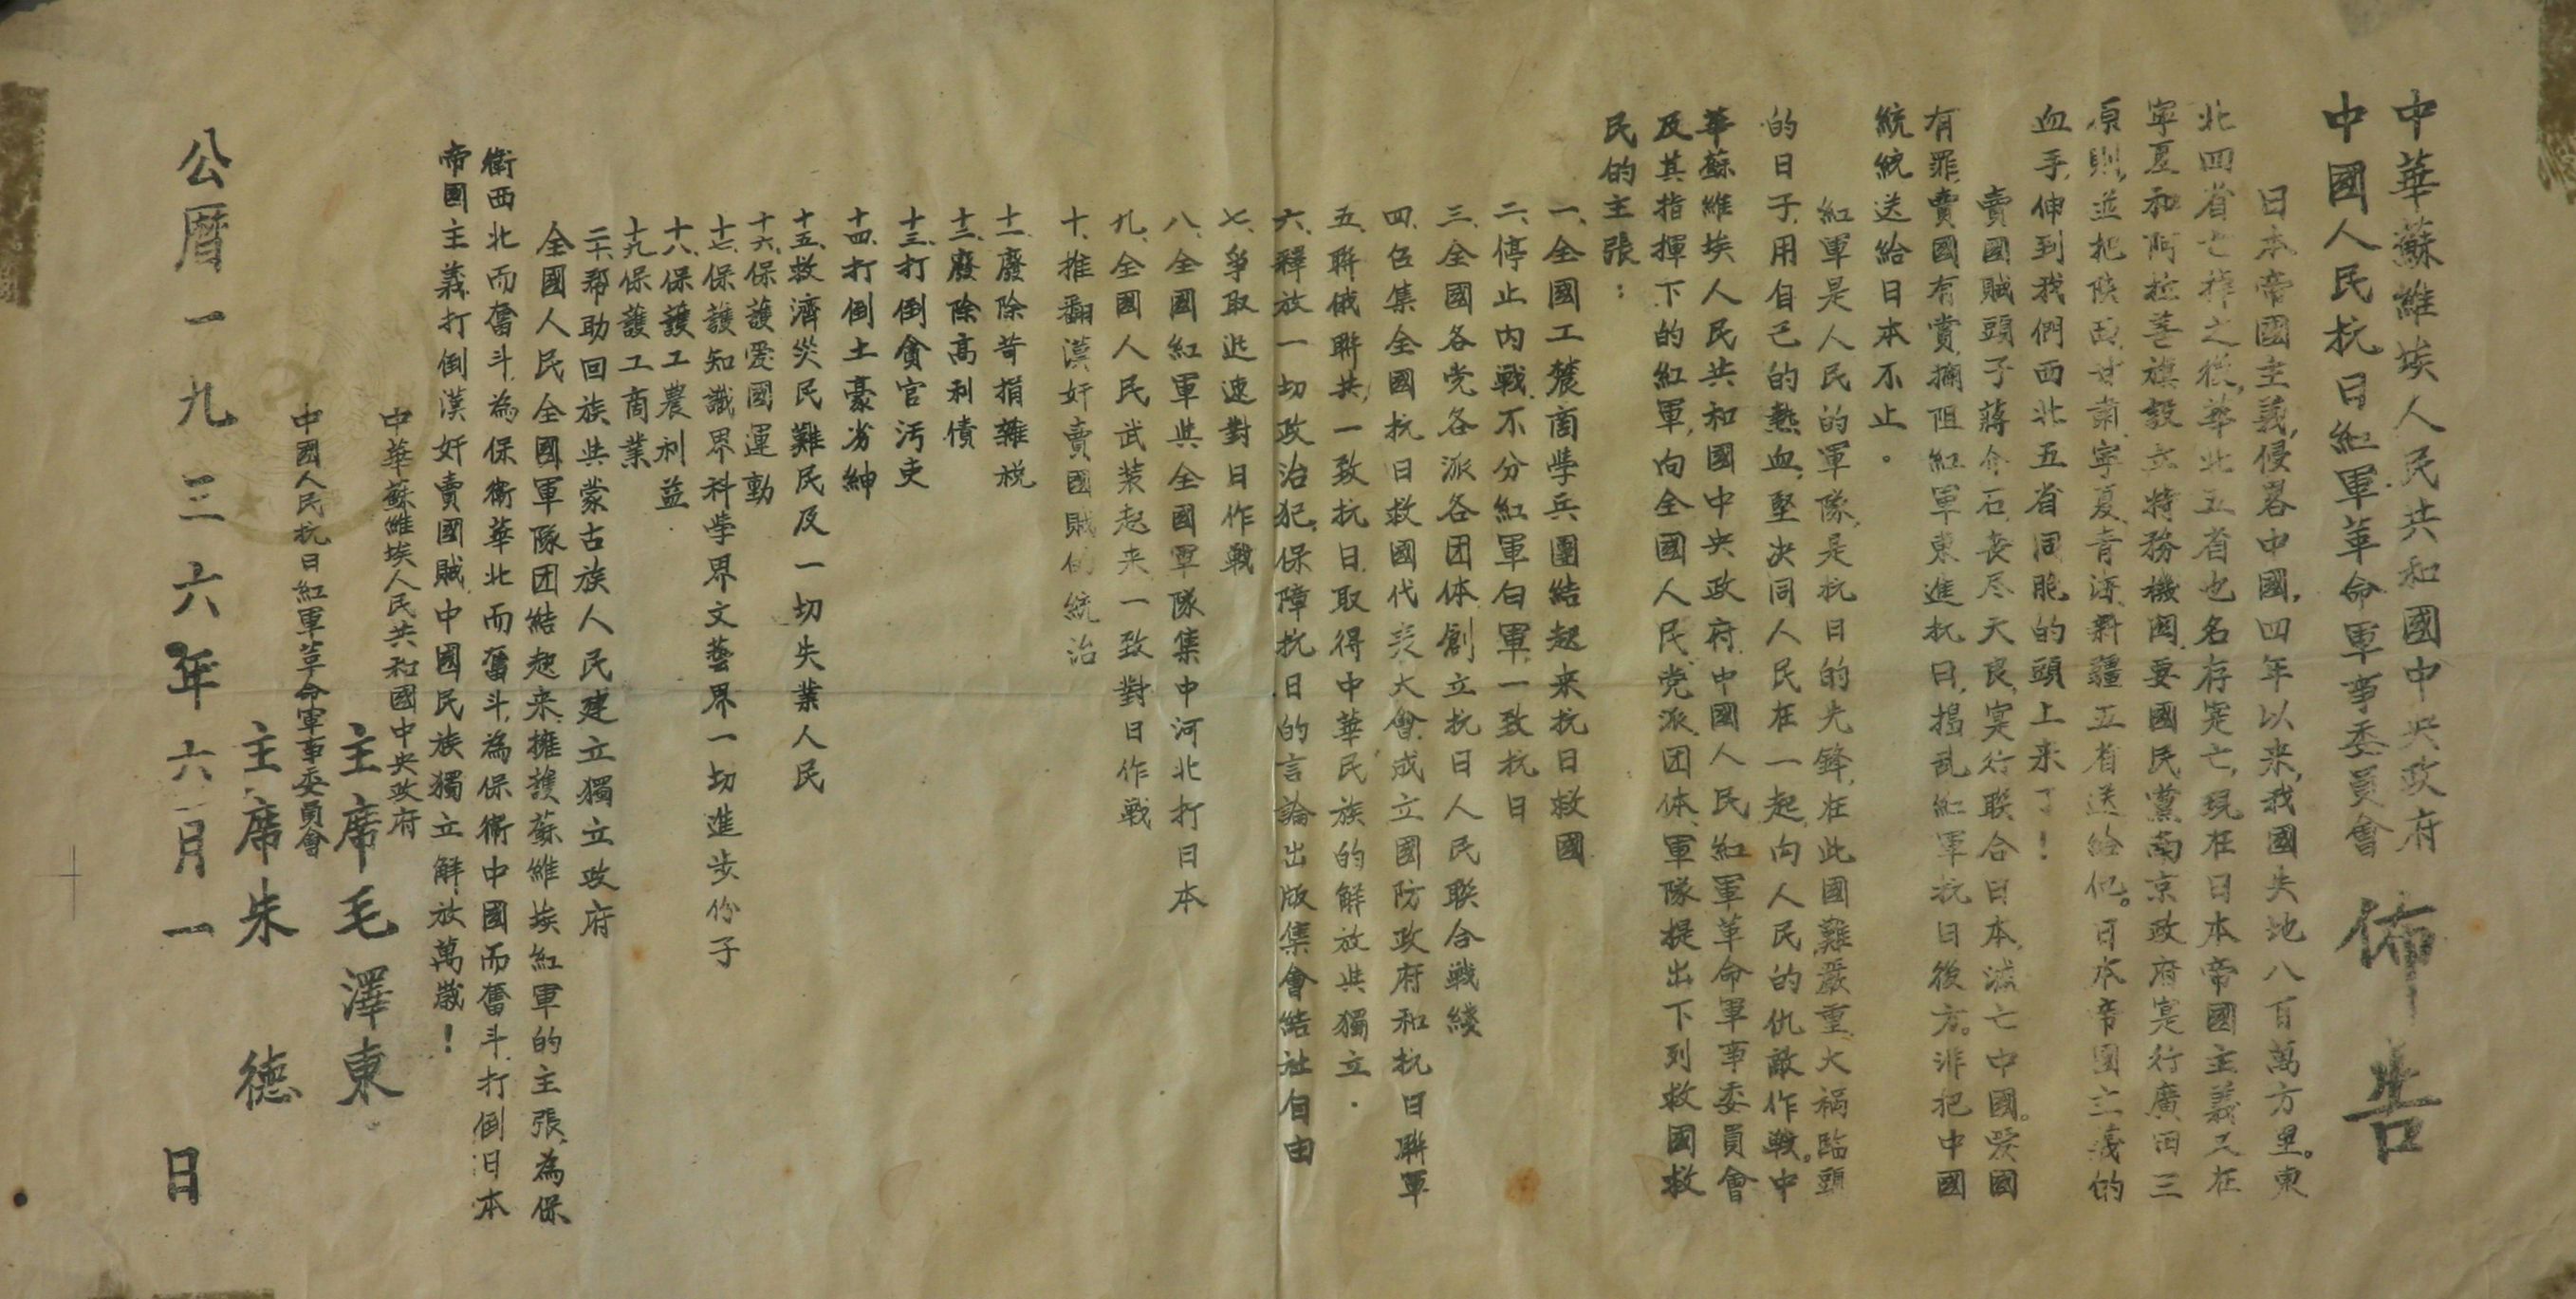 中華蘇維埃人民共和國中央政府
中國人民抗日紅軍革命軍事委員會
佈告
日本帝國主義,侵畧中國,四年以来,我國失地八百萬方里。東
北四省亡掉之後,華北五省也名存実亡,現在日本帝國主義又在
寧夏和阿拉善旗設立特務機関,要國民黨南京政府実行廣田三
原則,並把陝西,甘肅,寧夏,青海,新疆五省送給他。日本帝國主義的
血手,伸到我們西北五省同胞的頭上来了!
賣國賊頭子蔣介石,丧尽天良,実行联合日本,滅亡中國。爱國
有罪,賣國有賞,攔阻紅軍東進抗日,搗乱紅軍抗日後方。非把中國
統統送給日本不止。
紅軍是人民的軍隊,是抗日的先鋒,在此國難嚴重,大祸臨頭
的日子,用自己的熱血,堅决同人民在一起,向人民的仇敵作戰。中
華蘇維埃人民共和國中央政府,中國人民紅軍革命軍事委員會
及其指揮下的紅軍,向全國人民,党派,团体,軍隊提出下列救國救
民的主張:
一、全國工農商學兵團結起来抗日救國
二、停止内戰,不分紅軍白軍,一致抗日
三、全國各党各派各团体,創立抗日人民联合戰綫
四、召集全國抗日救國代表大會,成立國防政府和抗日聯軍
五、聯俄聯共,一致抗日,取得中華民族的解放與獨立.
六、釋放一切政治犯,保障抗日的言論出版集會結社自由
七、爭取迅速對日作戰
八、全國紅軍與全國軍隊集中河北打日本
九、全國人民武装起来,一致對日作戰
十、推翻漢奸賣國賊的統治
十一、廢除苛捐雜税
十二、廢除高利債
十三、打倒貪官污吏
十四、打倒土豪劣紳
十五、救濟災民難民及一切失業人民
十六、保護爱國運動
十七、保護知識界科學界文藝界一切進步份子
十八、保護工農利益
十九、保護工商業
二十、幫助回族共蒙古族人民建立獨立政府
全國人民全國軍隊团結起来,擁護蘇維埃紅軍的主張,為保
衛西北而奮斗,為保衛華北而奮斗,為保衛中國而奮斗,打倒日本
帝國主義,打倒漢奸賣國賊,中國民族獨立解放萬歲!
中華蘇維埃人民共和國中央政府
主席毛澤東
中國人民抗日紅軍革命軍事委員會
主席朱德
公曆一九三六年六月一日